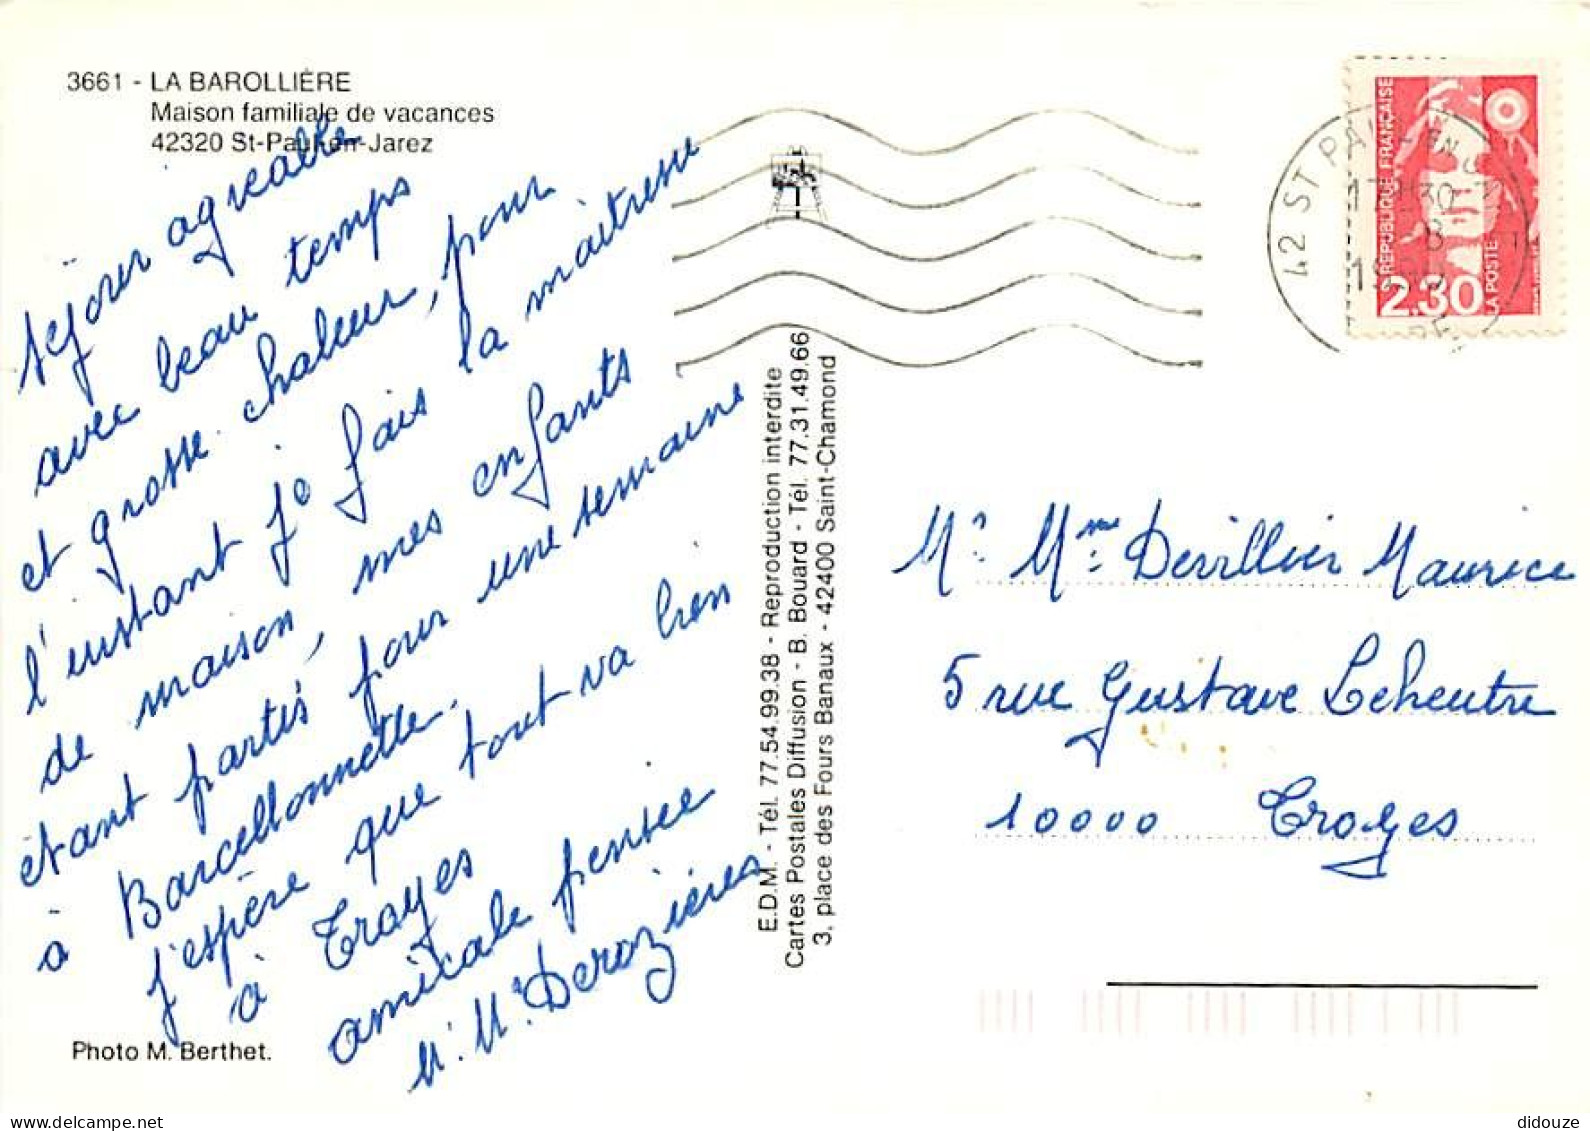 3661 - LA BAROLLIÈRE
Maison familiale de vacances
42320 St-Paul-en-Jarez
séjour agréable
avec beau temps
et grosse chaleur, pour
l'instant je fais la maitresse
de maison, mes enfants
étant partis pour une semaine
à Barcellonnette.
j'espère que tout va bien
à Troyes
amicale pensée
M. Derozières
Photo M. Berthet.
E.D.M. - Tél. 77.54.99.38 - Reproduction interdite
Cartes Postales Diffusion - B. Bouard - Tél. 77.31.49.66
3, place des Fours Banaux - 42400 Saint-Chamond
42 ST PAUL EN
RÉPUBLIQUE FRANÇAISE
2.30
LA POSTE
Mr Mme Devillier Maurice
5 rue Gustave Leheutre
10000 Troyes
didouze